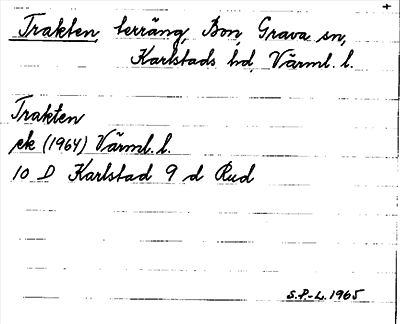 Trakten, terräng, Bon, Grava sn,
Karlstads hd, Värml. l.
Trakten
ek (1964) Värml. l.
10 D Karlstad 9 d Rud
S.P.-L. 1965